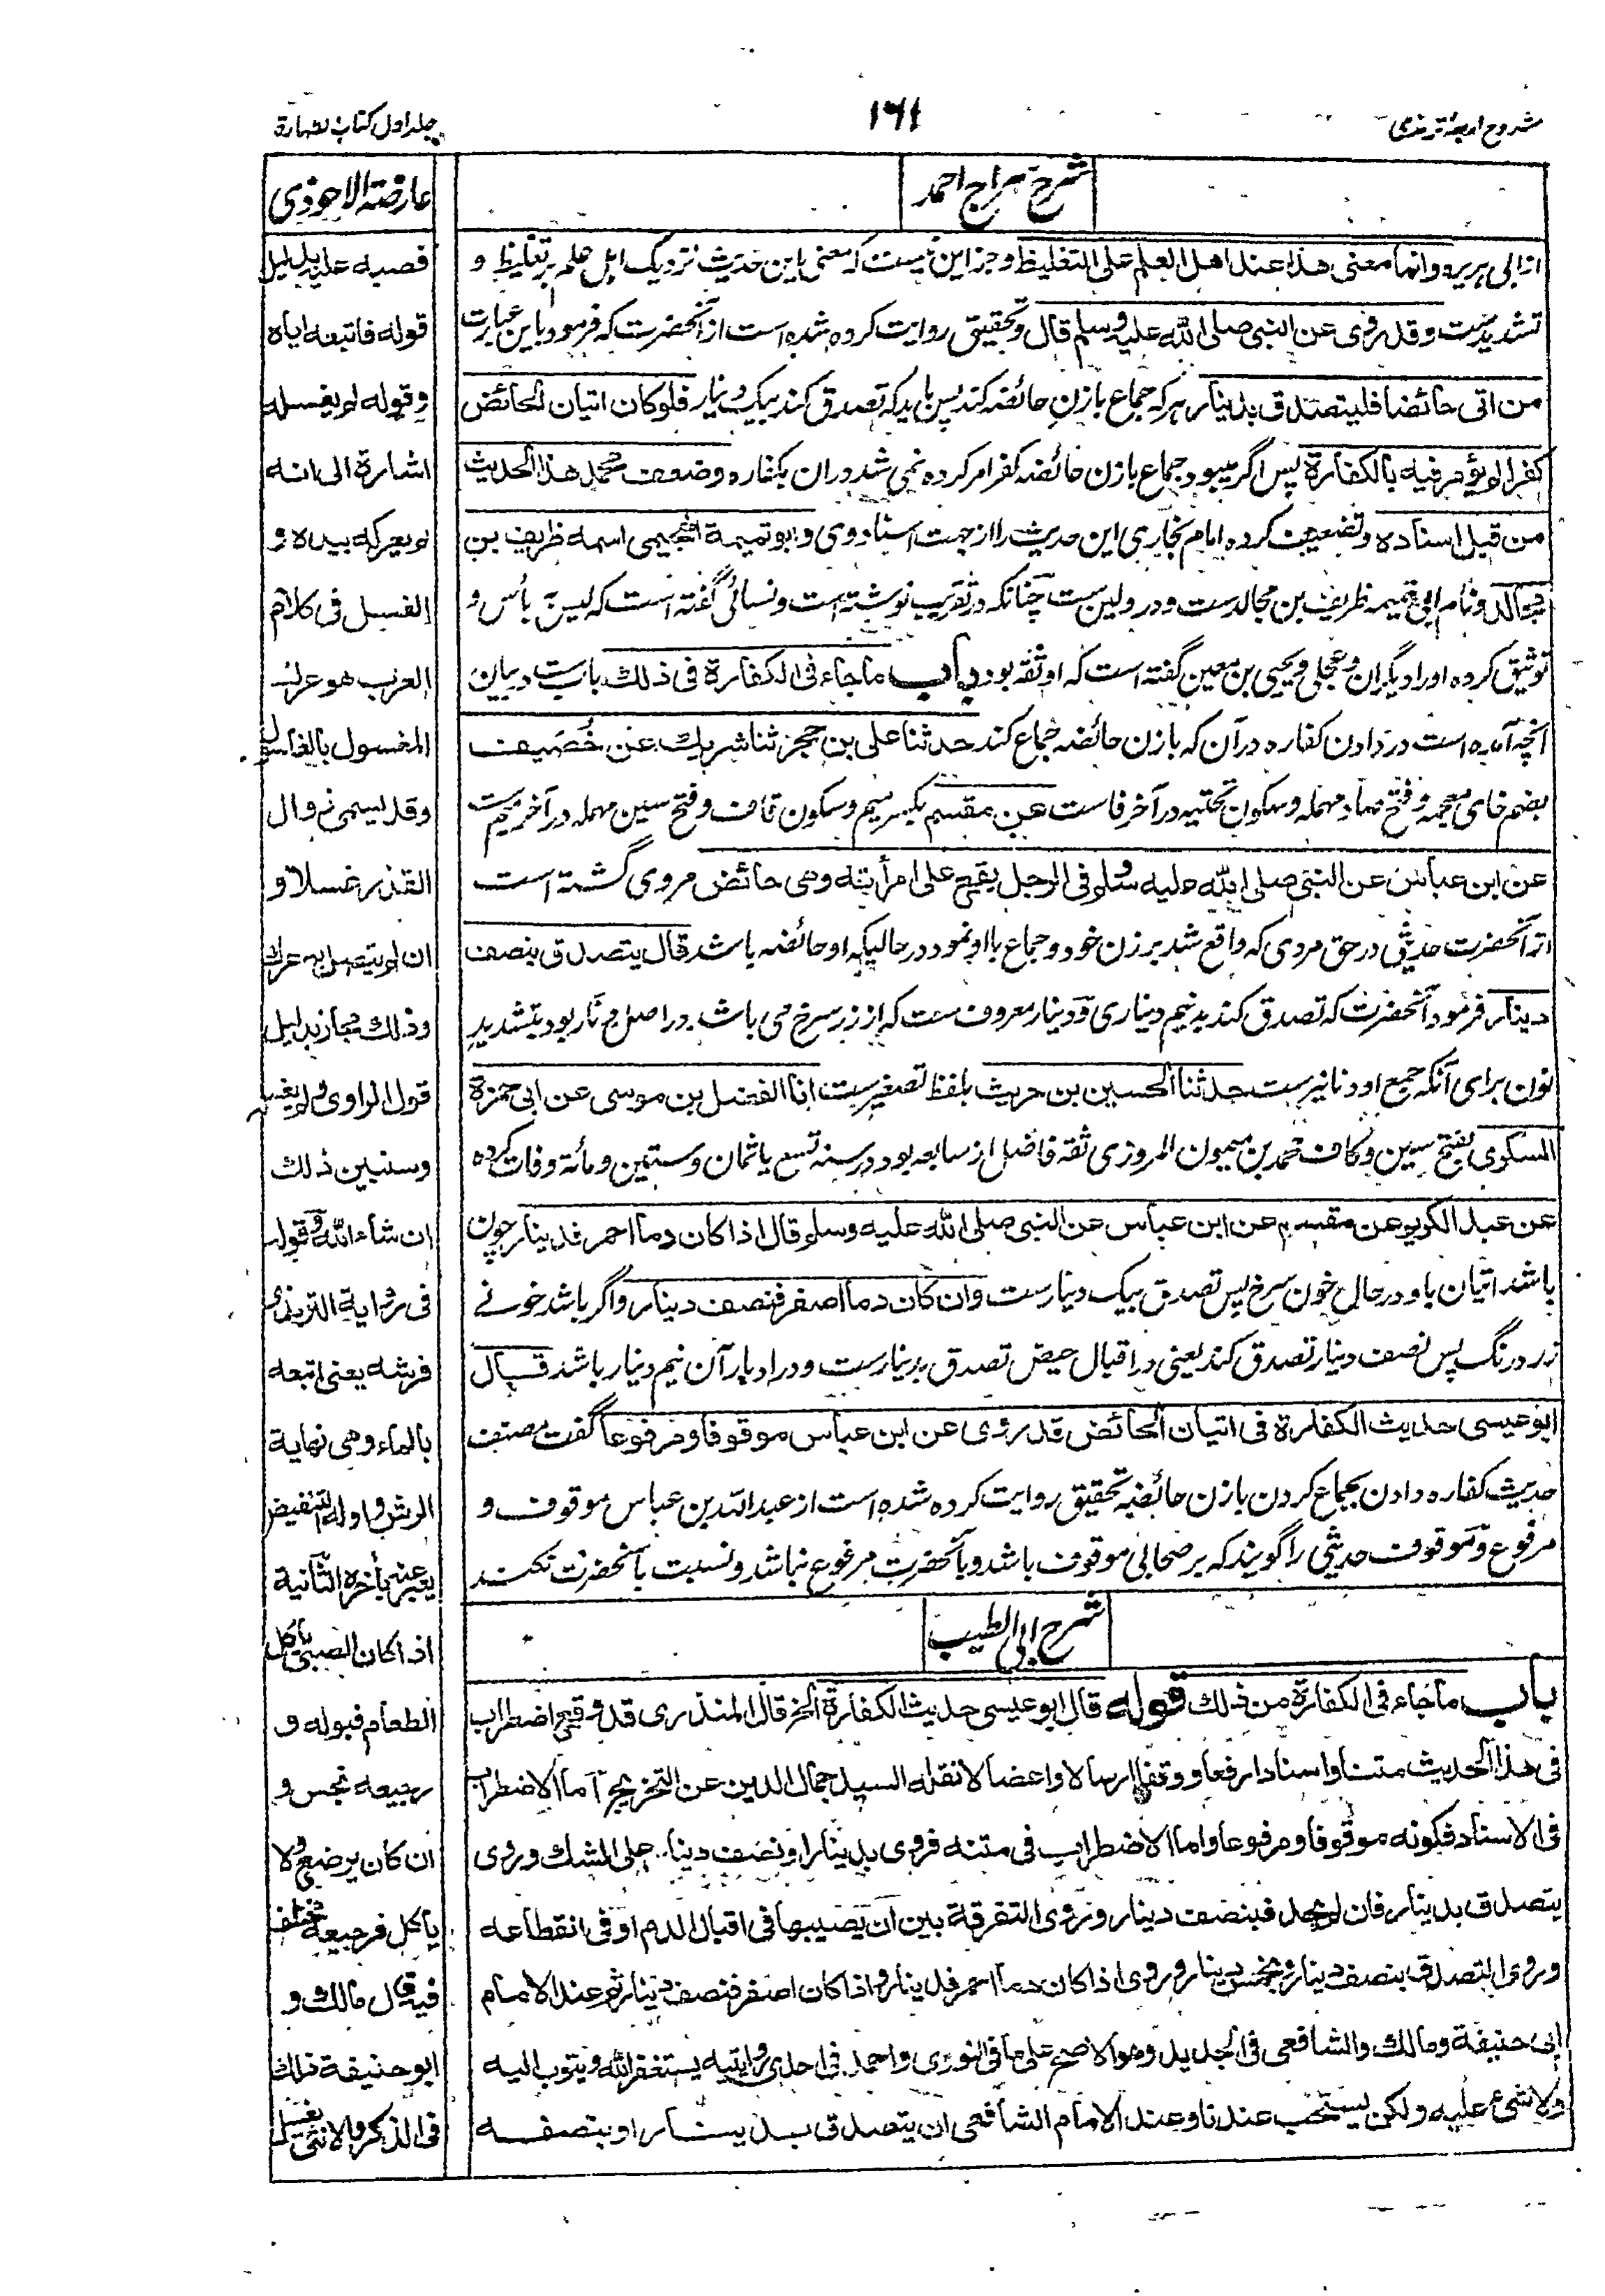 شروح اربعۂ ترمذی
۱۶۱
جلد اول کتاب الطہارة
شرح سراج احمد
از ابی ہریرہ وانما معنی هذا عند اهل العلم علی التغلیظ و جز این نیست کہ معنی این حدیث نزدیک اہل علم بر تغلیظ و
تشدیدست وقد روی عن النبی صلی الله علیه وسلم قال و تحقیق روایت کردہ شدہ است از آنحضرت کہ فرمود باین عبارت
من اتی حائضا فلیتصدق بدینار ہر کہ جماع بازن حائضہ کند پس باید کہ تصدق کند بیک دینار فلو کان اتیان الحائض
کفرا لم یؤمر فیه بالکفارة پس اگر میبود جماع بازن حائضہ کفر امر کردہ نمی شد در ان بکفارہ وضعف محمد هذا الحدیث
من قبل اسناده و تضعیف کردہ امام بخاری این حدیث را از جہت اسناد وی وابو تمیمة الهجیمی اسمه ظریف بن
مجالد و نام ابی تمیمہ ظریف بن مجالدست و در و لین ست چنانکہ در تقریب نوشتہ است و نسائی گفتہ است کہ لیس بہ بأس و
توثیق کردہ اورا دیگران و عجلی و یحیی بن معین گفتہ است کہ او ثقہ بود باب ماجاء فی الکفارة فی ذلك باب ست در بیان
آنچہ آمدہ است در دادن کفارہ در آن کہ بازن حائضہ جماع کند حدثنا علی بن حجر ثنا شریك عن خُصَیف
بضم خای معجمہ و فتح صاد مہملہ و سکون تحتیہ در آخر فاست عن مقسم بکسر میم و سکون قاف و فتح سین مہملہ در آخر میم ست
عن ابن عباس عن النبی صلی الله علیه وسلم فی الرجل یقع علی امرأته وهی حائض مروی گشتہ است
از آنحضرت حدیثی در حق مردی کہ واقع شد بر زن خود و جماع با او نمود در حالیکہ او حائضہ باشد قال یتصدق بنصف
دینار فرمود آنحضرت کہ تصدق کند بہ نیم دیناری و دینار معروف ست کہ از زر سرخ می باشد در اصل دنّار بود بتشدید
نون برای آنکہ جمع او دنانیرست حدثنا الحسین بن حریث بلفظ تصغیرست انا الفضل بن موسی عن ابی حمزة
السکری بفتح سین و کاف محمد بن میمون المروزی ثقہ فاضل از سابعہ بود در سنہ تسع یا ثمان و ستین و مأتہ وفات کردہ
عن عبد الکریم عن مقسم عن ابن عباس عن النبی صلی الله علیه وسلم قال اذا کان دما احمر فدینار چون
باشد اتیان باو در حال خون سرخ پس تصدق بیک دینارست وان کان دما اصفر فنصف دینار و اگر باشد خونے
زرد رنگ پس نصف دینار تصدق کند یعنی در اقبال حیض تصدق بدینارست و در ادبار آن نیم دینار باشد قال
ابو عیسی حدیث الکفارة فی اتیان الحائض قد روی عن ابن عباس موقوفا ومرفوعا گفت مصنف
حدیث کفارہ دادن بجماع کردن بازن حائضہ بتحقیق روایت کردہ شدہ است از عبد اللہ بن عباس موقوف و
مرفوع و موقوف حدیثی را گویند کہ بر صحابی موقوف باشد و بآنحضرت مرفوع نباشد و نسبت بآنحضرت نکنند
شرح ابی الطیب
باب ماجاء فی الکفارة من ذلك قوله قال ابو عیسی حدیث الکفارة الخ قال المنذری قد وقع اضطراب
فی هذا الحدیث متنا واسنادا رفعا ووقفا ارسالا واعضالا نقله السید جمال الدین عن التخریج اما الاضطراب
فی الاسناد فکونه موقوفا ومرفوعا واما الاضطراب فی متنه فروی بدینار او نصف دینار علی الشك وروی
یتصدق بدینار فان لم یجد فبنصف دینار وروی التفرقة بین ان یصیبها فی اقبال الدم او فی انقطاعه
وروی التصدق بنصف دینار وبخمس دینار وروی اذا کان دما احمر فدینار واذا کان اصفر فنصف دینار ثم عند الامام
ابی حنیفة ومالك والشافعی فی الجدید وهو الاصح علی ما فی النوری واحمد فی احدی روایتیه یستغفر الله ویتوب الیه
ولا شیء علیه ولکن یستحب عندنا وعند الامام الشافعی ان یتصدق بدینار او بنصفه
عارضة الاحوذی
فصبه علیه بدلیل
قوله فاتبعه ایاه
وقوله لم یغسله
اشارة الی انه
لم یعرکه بیده و
الغسل فی کلام
العرب هو عرك
المغسول بالغاسول
وقد یسمی زوال
القذر غسلا و
ان لم یتصل به عرك
وذلك مجاز بدلیل
قول الراوی ولم یغسله
وسنبین ذلك
ان شاء الله وقوله
فی روایة الترمذی
فرشه یعنی اتبعه
بالماء وهی نهایة
الرش واوله التنفیض
یعبر عنه بأخره الثانیة
اذا کان الصبی یأکل
الطعام فبوله و
رجیعه نجس و
ان کان یرضع ولا
یأکل فرجیعه مختلف
فیه قال مالك و
ابو حنیفة ذلك
فی الذکر والانثی یغسل